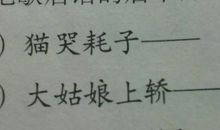 ) 猫哭耗子——
) 大姑娘上轿——